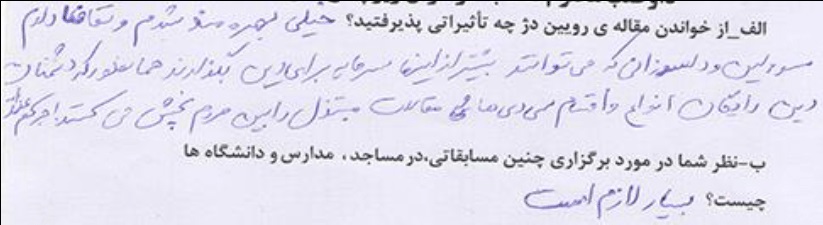 الف_از خواندن مقاله ی رویین دژ چه تأثیراتی پذیرفتید؟ خیلی بهره مند شدم و تقاضا دارم
مسئولین و دلسوزانی که می توانند بیشتر از اینها سرمایه برای دین بگذارند همانطور که دشمنان
دین رایگان انواع و اقسام سی دی ها و مقالات مبتذل را بین مردم پخش می کنند اجرکم عندالله
ب-نظر شما در مورد برگزاری چنین مسابقاتی،در مساجد، مدارس و دانشگاه ها
چیست؟ بسیار لازم است